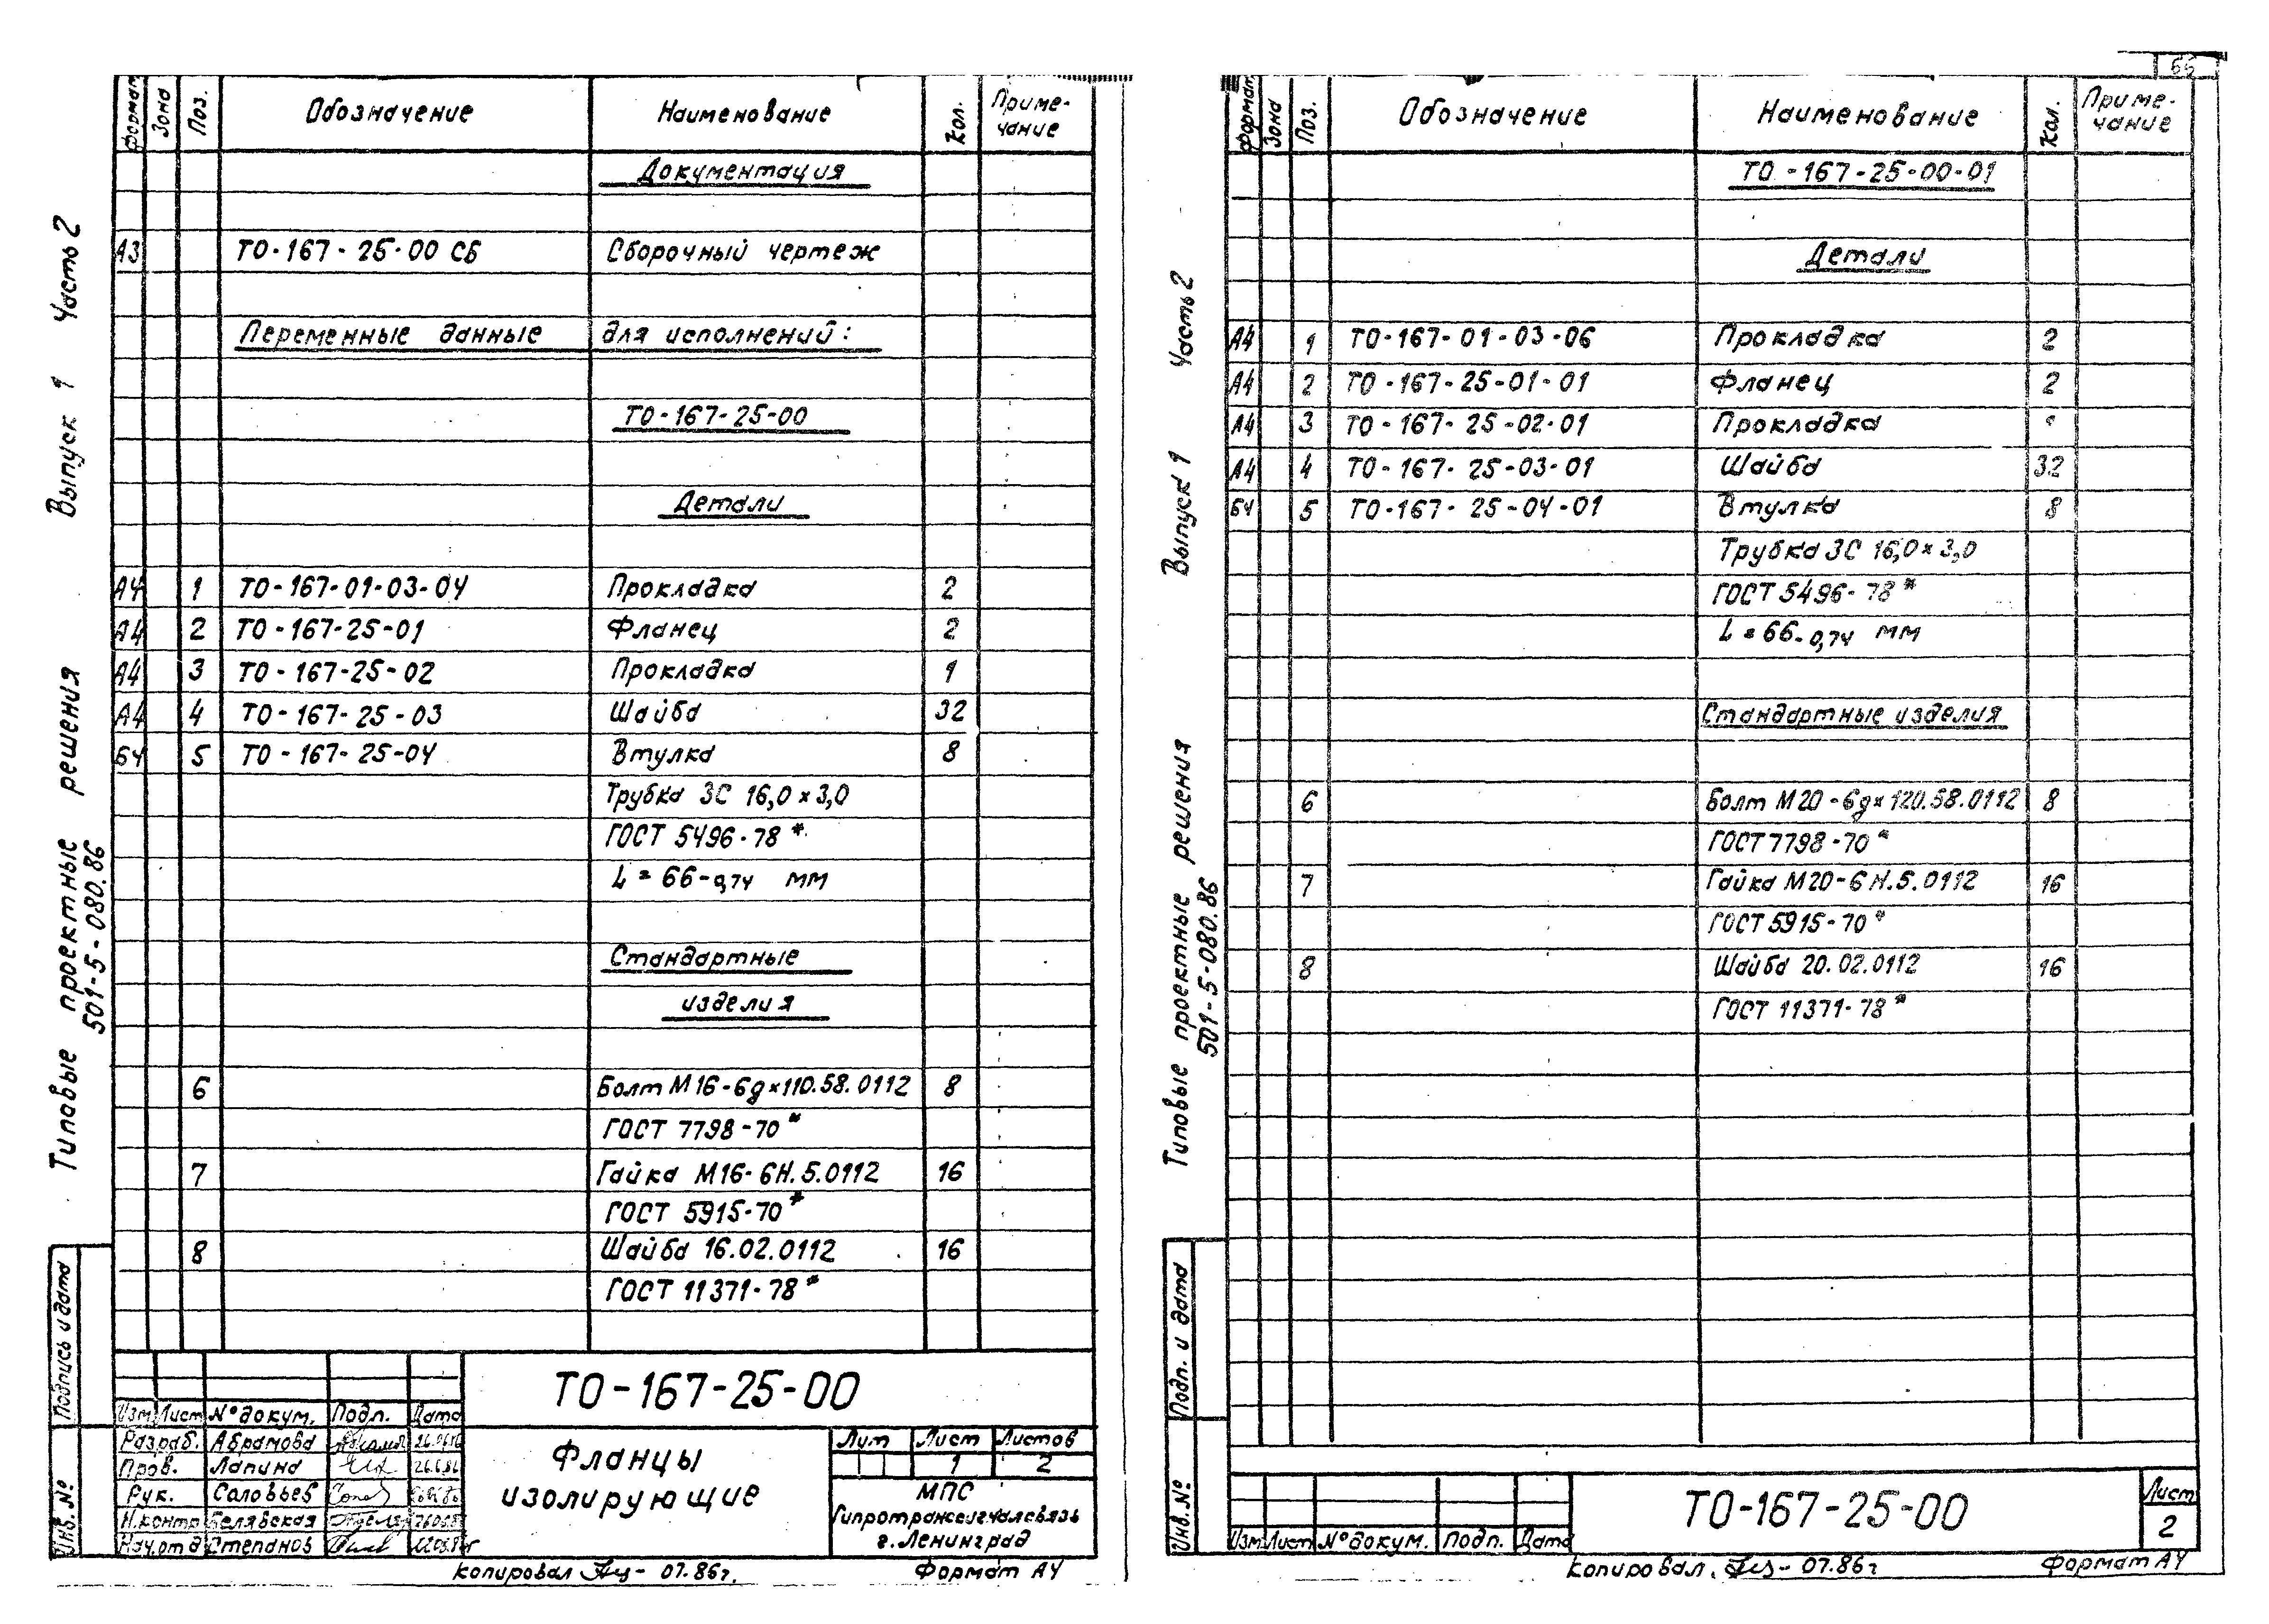 Типовые проектные решения Выпуск 1 Часть 2
501-5-080.86
Формат Зона Поз. Обозначение Наименование Кол. Приме-
чание
Документация
А3 ТО-167-25-00 СБ Сборочный чертеж
Переменные данные для исполнений:
ТО-167-25-00
Детали
А4 1 ТО-167-01-03-04 Прокладка 2
А4 2 ТО-167-25-01 Фланец 2
А4 3 ТО-167-25-02 Прокладка 1
А4 4 ТО-167-25-03 Шайба 32
БЧ 5 ТО-167-25-04 Втулка 8
Трубка 3С 16,0×3,0
ГОСТ 5496-78*
L = 66-0,74 мм
Стандартные
изделия
6 Болт М16-6g×110.58.0112 8
ГОСТ 7798-70*
7 Гайка М16-6Н.5.0112 16
ГОСТ 5915-70*
8 Шайба 16.02.0112 16
ГОСТ 11371-78*
Подпись и дата
Инв. №
ТО-167-25-00
Изм Лист № докум. Подп. Дата
Разраб. Абрамова
Пров. Лапина 26.6.86
Рук. Соловьев
Н.контр Белявская
Нач.отд Степанов
Фланцы
изолирующие
Лит Лист Листов
1 2
МПС
Гипротранссигналсвязь
г. Ленинград
Копировал 07.86г. Формат А4
66
Типовые проектные решения Выпуск 1 Часть 2
501-5-080.86
Формат Зона Поз. Обозначение Наименование Кол. Приме-
чание
ТО-167-25-00-01
Детали
А4 1 ТО-167-01-03-06 Прокладка 2
А4 2 ТО-167-25-01-01 Фланец 2
А4 3 ТО-167-25-02-01 Прокладка
А4 4 ТО-167-25-03-01 Шайба 32
БЧ 5 ТО-167-25-04-01 Втулка 8
Трубка 3С 16,0×3,0
ГОСТ 5496-78*
L = 66-0,74 мм
Стандартные изделия
6 Болт М20-6g×120.58.0112 8
ГОСТ 7798-70*
7 Гайка М20-6Н.5.0112 16
ГОСТ 5915-70*
8 Шайба 20.02.0112 16
ГОСТ 11371-78*
Подп. и дата
Инв. №
Изм Лист № докум. Подп. Дата
ТО-167-25-00
Лист
2
Копировал 07.86г Формат А4